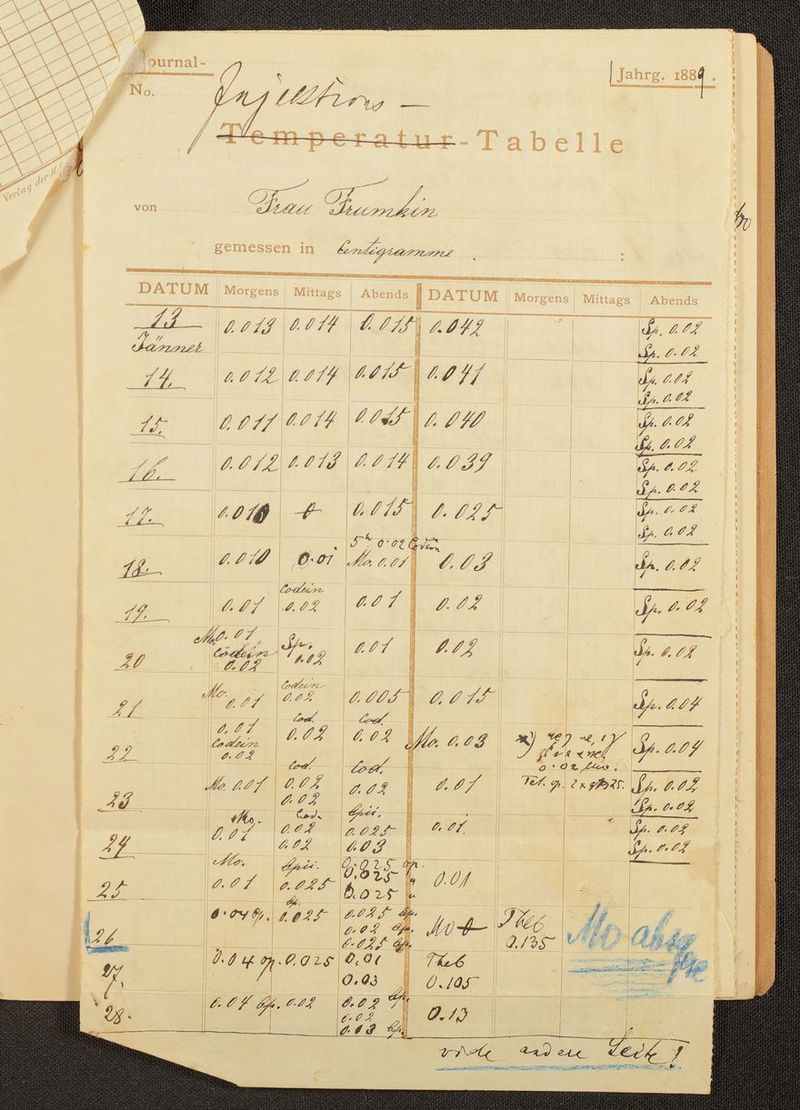 Journal-
No.
Jahrg. 1889.
Injektions -
Temperatur-Tabelle
von Frau Frumkin
gemessen in Centigramme :
DATUM Morgens Mittags Abends DATUM Morgens Mittags Abends
13 0.013 0.014 0.015 0.042 Sp. 0.02
Jänner Sp. 0.02
14. 0.012 0.014 0.015 0.041 Sp. 0.02
Sp. 0.02
15. 0.011 0.014 0.015 0.040 Sp. 0.02
Sp. 0.02
16. 0.012 0.013 0.014 0.039 Sp. 0.02
Sp. 0.02
17. 0.010 0 0.015 0.025 Sp. 0.02
Sp. 0.02
5h 0.02 Codein
18. 0.010 0.01 Mo. 0.01 0.03 Sp. 0.02
Codein
19. 0.01 0.02 0.01 0.02 Sp. 0.02
Mo. 0.01
20 Codein Sp. 0.01 0.02 Sp. 0.02
0.02 0.02
Mo. Codein
21 0.01 0.02 0.005 0.015 Sp. 0.04
0.01 Cod. Cod.
22 Codein 0.02 0.02 Mo. 0.03 Sp. 0.04
0.02
0.02
Cod Cod.
23 Mo. 0.01 0.02 0.02 0.01 Sp. 0.02
0.02 Sp. 0.02
Mo. Cod. Opii.
24 0.01 0.02 0.025 0.01. Sp. 0.02
0.02 0.03 Sp. 0.02
Mo. Opii. 0.025 op.
25 0.01 0.025 0.025 " 0.01
0.025 "
Op.
26 0.04 Op. 0.025 0.025 Op. Mo 0 Theb
0.02 Op. 0.135
0.025 Op.
Mo
27. 0.04 op. 0.025 0.01 Theb
0.03 0.105
28. 0.04 Op. 0.02 0.02 Op. 0.13
0.02
0.03 Op.
vide andere Seite!
Verlag der